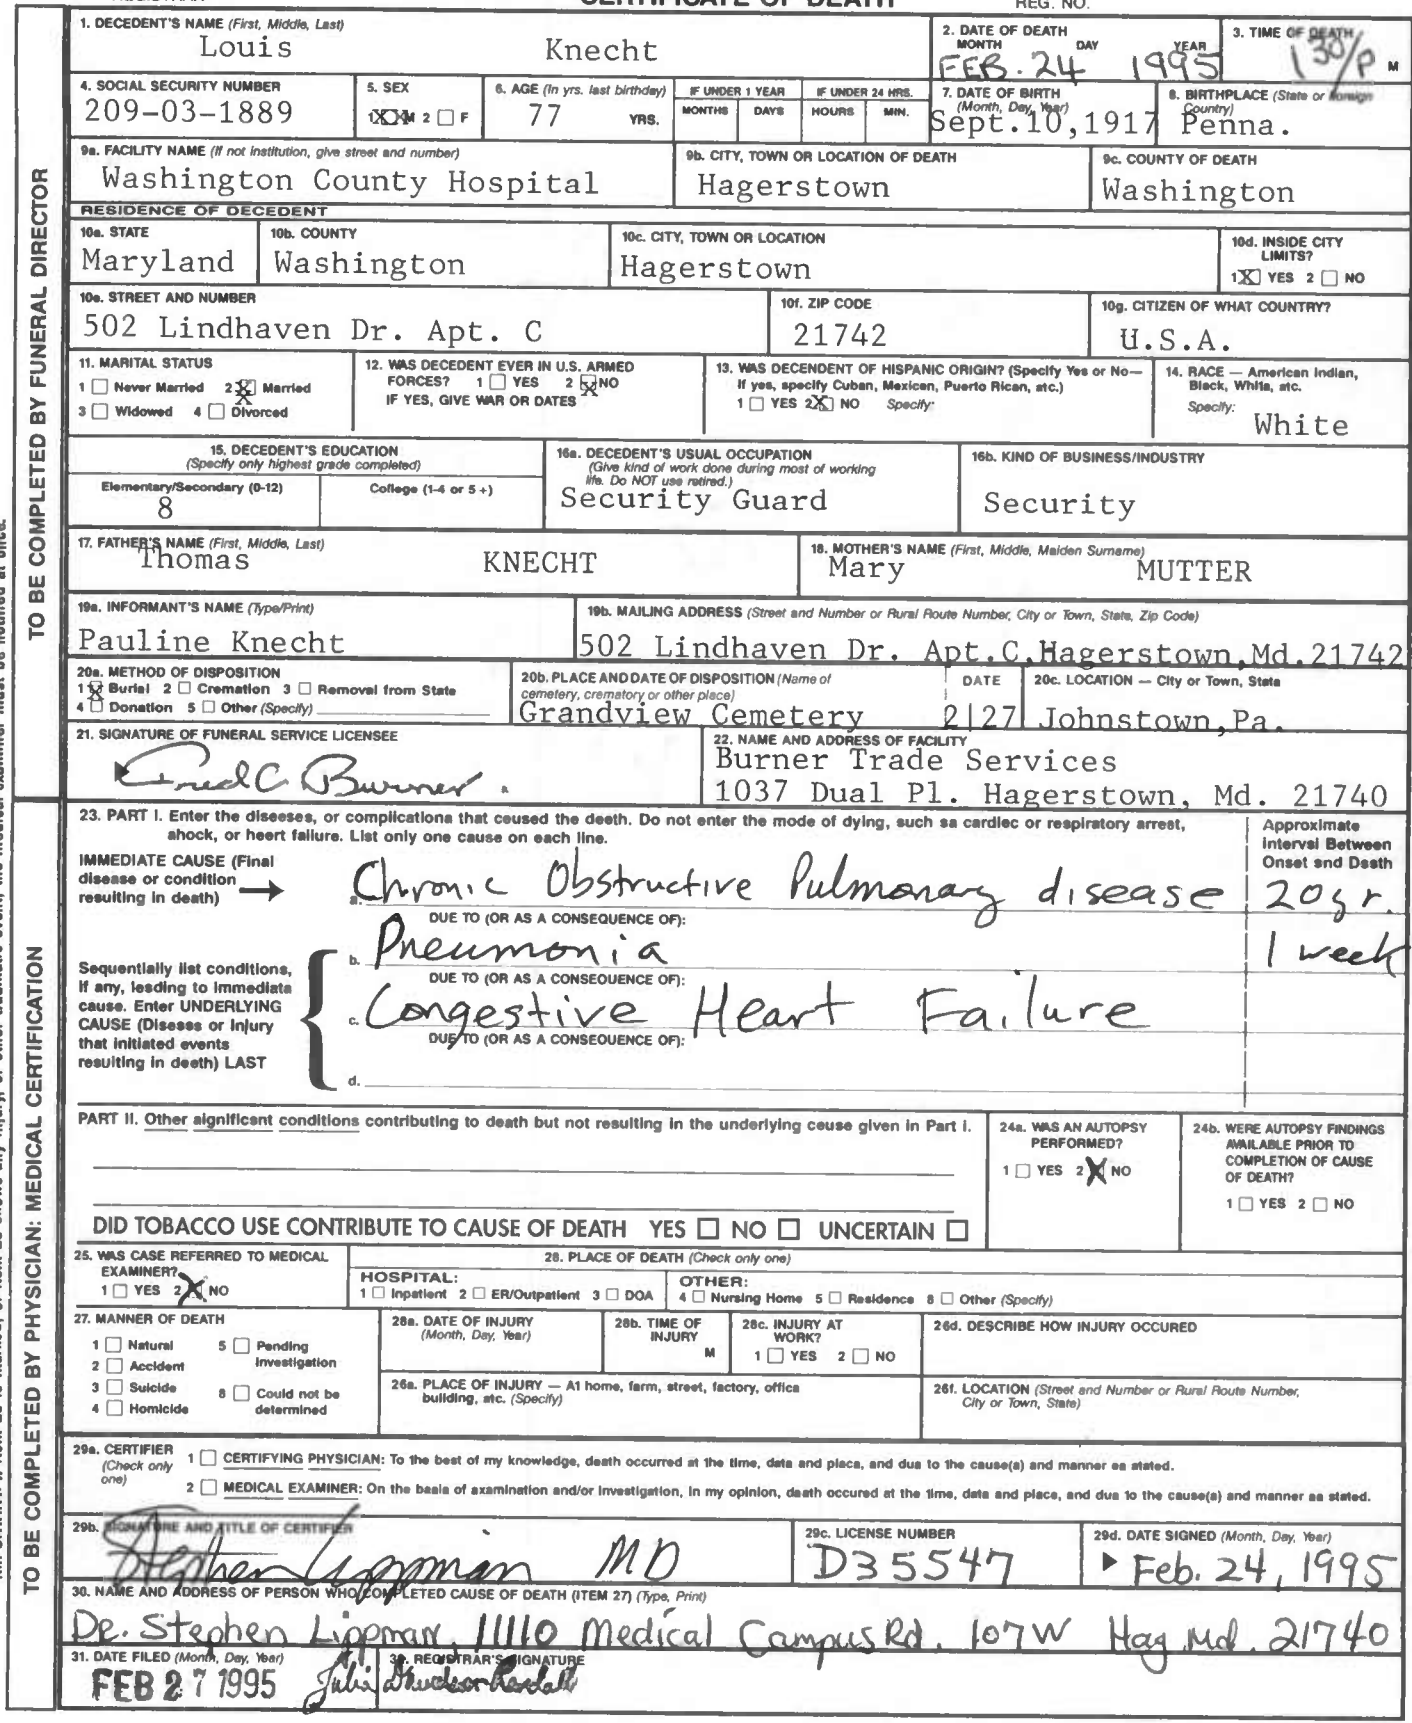 CERTIFICATE OF DEATH
REG. NO.
1. DECEDENT'S NAME (First, Middle, Last)
Louis Knecht
2. DATE OF DEATH
MONTH DAY YEAR
FEB. 24 1995
3. TIME OF DEATH
130/P M
4. SOCIAL SECURITY NUMBER
209-03-1889
5. SEX
1 M 2 F
6. AGE (In yrs. last birthday)
77 YRS.
IF UNDER 1 YEAR
MONTHS DAYS
IF UNDER 24 HRS.
HOURS MIN.
7. DATE OF BIRTH
(Month, Day, Year)
Sept.10,1917
8. BIRTHPLACE (State or Foreign
Country)
Penna.
9a. FACILITY NAME (If not institution, give street and number)
Washington County Hospital
9b. CITY, TOWN OR LOCATION OF DEATH
Hagerstown
9c. COUNTY OF DEATH
Washington
RESIDENCE OF DECEDENT
10a. STATE
Maryland
10b. COUNTY
Washington
10c. CITY, TOWN OR LOCATION
Hagerstown
10d. INSIDE CITY
LIMITS?
1 X YES 2 NO
10e. STREET AND NUMBER
502 Lindhaven Dr. Apt. C
10f. ZIP CODE
21742
10g. CITIZEN OF WHAT COUNTRY?
U.S.A.
11. MARITAL STATUS
1 Never Married 2 X Married
3 Widowed 4 Divorced
12. WAS DECEDENT EVER IN U.S. ARMED
FORCES? 1 YES 2 X NO
IF YES, GIVE WAR OR DATES
13. WAS DECENDENT OF HISPANIC ORIGIN? (Specify Yes or No—
If yes, specify Cuban, Mexican, Puerto Rican, etc.)
1 YES 2 X NO Specify:
14. RACE — American Indian,
Black, White, etc.
Specify:
White
15. DECEDENT'S EDUCATION
(Specify only highest grade completed)
Elementary/Secondary (0-12)
8
College (1-4 or 5+)
16a. DECEDENT'S USUAL OCCUPATION
(Give kind of work done during most of working
life. Do NOT use retired.)
Security Guard
16b. KIND OF BUSINESS/INDUSTRY
Security
17. FATHER'S NAME (First, Middle, Last)
Thomas KNECHT
18. MOTHER'S NAME (First, Middle, Maiden Surname)
Mary MUTTER
19a. INFORMANT'S NAME (Type/Print)
Pauline Knecht
19b. MAILING ADDRESS (Street and Number or Rural Route Number, City or Town, State, Zip Code)
502 Lindhaven Dr. Apt.C,Hagerstown,Md.21742
20a. METHOD OF DISPOSITION
1 X Burial 2 Cremation 3 Removal from State
4 Donation 5 Other (Specify)
20b. PLACE AND DATE OF DISPOSITION (Name of
cemetery, crematory or other place)
Grandview Cemetery
DATE
2|27
20c. LOCATION — City or Town, State
Johnstown,Pa.
21. SIGNATURE OF FUNERAL SERVICE LICENSEE
Fred C Burner.
22. NAME AND ADDRESS OF FACILITY
Burner Trade Services
1037 Dual Pl. Hagerstown, Md. 21740
23. PART I. Enter the diseases, or complications that caused the death. Do not enter the mode of dying, such sa cardiec or respiratory arrest,
shock, or heert failure. List only one cause on each line.
Approximate
Interval Between
Onset and Death
IMMEDIATE CAUSE (Final
disease or condition
resulting in death)
a. Chronic Obstructive Pulmonary disease 20yr.
DUE TO (OR AS A CONSEQUENCE OF):
b. Pneumonia 1 week
DUE TO (OR AS A CONSEQUENCE OF):
c. Congestive Heart Failure
DUE TO (OR AS A CONSEQUENCE OF):
d.
Sequentially list conditions,
If any, leading to immediate
cause. Enter UNDERLYING
CAUSE (Disease or Injury
that initiated events
resulting in death) LAST
PART II. Other significant conditions contributing to death but not resulting in the underlying cause given in Part I.
24a. WAS AN AUTOPSY
PERFORMED?
1 YES 2 X NO
24b. WERE AUTOPSY FINDINGS
AVAILABLE PRIOR TO
COMPLETION OF CAUSE
OF DEATH?
1 YES 2 NO
DID TOBACCO USE CONTRIBUTE TO CAUSE OF DEATH YES NO UNCERTAIN
25. WAS CASE REFERRED TO MEDICAL
EXAMINER?
1 YES 2 X NO
26. PLACE OF DEATH (Check only one)
HOSPITAL:
1 Inpatient 2 ER/Outpatient 3 DOA
OTHER:
4 Nursing Home 5 Residence 6 Other (Specify)
27. MANNER OF DEATH
1 Natural 5 Pending
Investigation
2 Accident
3 Suicide 6 Could not be
determined
4 Homicide
28a. DATE OF INJURY
(Month, Day, Year)
28b. TIME OF
INJURY
M
28c. INJURY AT
WORK?
1 YES 2 NO
28d. DESCRIBE HOW INJURY OCCURED
28e. PLACE OF INJURY — At home, farm, street, factory, office
building, etc. (Specify)
28f. LOCATION (Street and Number or Rural Route Number,
City or Town, State)
29a. CERTIFIER
(Check only
one)
1 CERTIFYING PHYSICIAN: To the best of my knowledge, death occurred at the time, date and place, and due to the cause(s) and manner as stated.
2 MEDICAL EXAMINER: On the basis of examination and/or investigation, in my opinion, death occured at the time, date and place, and due to the cause(s) and manner as stated.
29b. SIGNATURE AND TITLE OF CERTIFIER
Stephen Lippman MD
29c. LICENSE NUMBER
D35547
29d. DATE SIGNED (Month, Day, Year)
Feb. 24, 1995
30. NAME AND ADDRESS OF PERSON WHO COMPLETED CAUSE OF DEATH (ITEM 27) (Type, Print)
Dr. Stephen Lippman, 11110 Medical Campus Rd. 107W Hag Md. 21740
31. DATE FILED (Month, Day, Year)
FEB 27 1995
32. REGISTRAR'S SIGNATURE
TO BE COMPLETED BY FUNERAL DIRECTOR
TO BE COMPLETED BY PHYSICIAN: MEDICAL CERTIFICATION